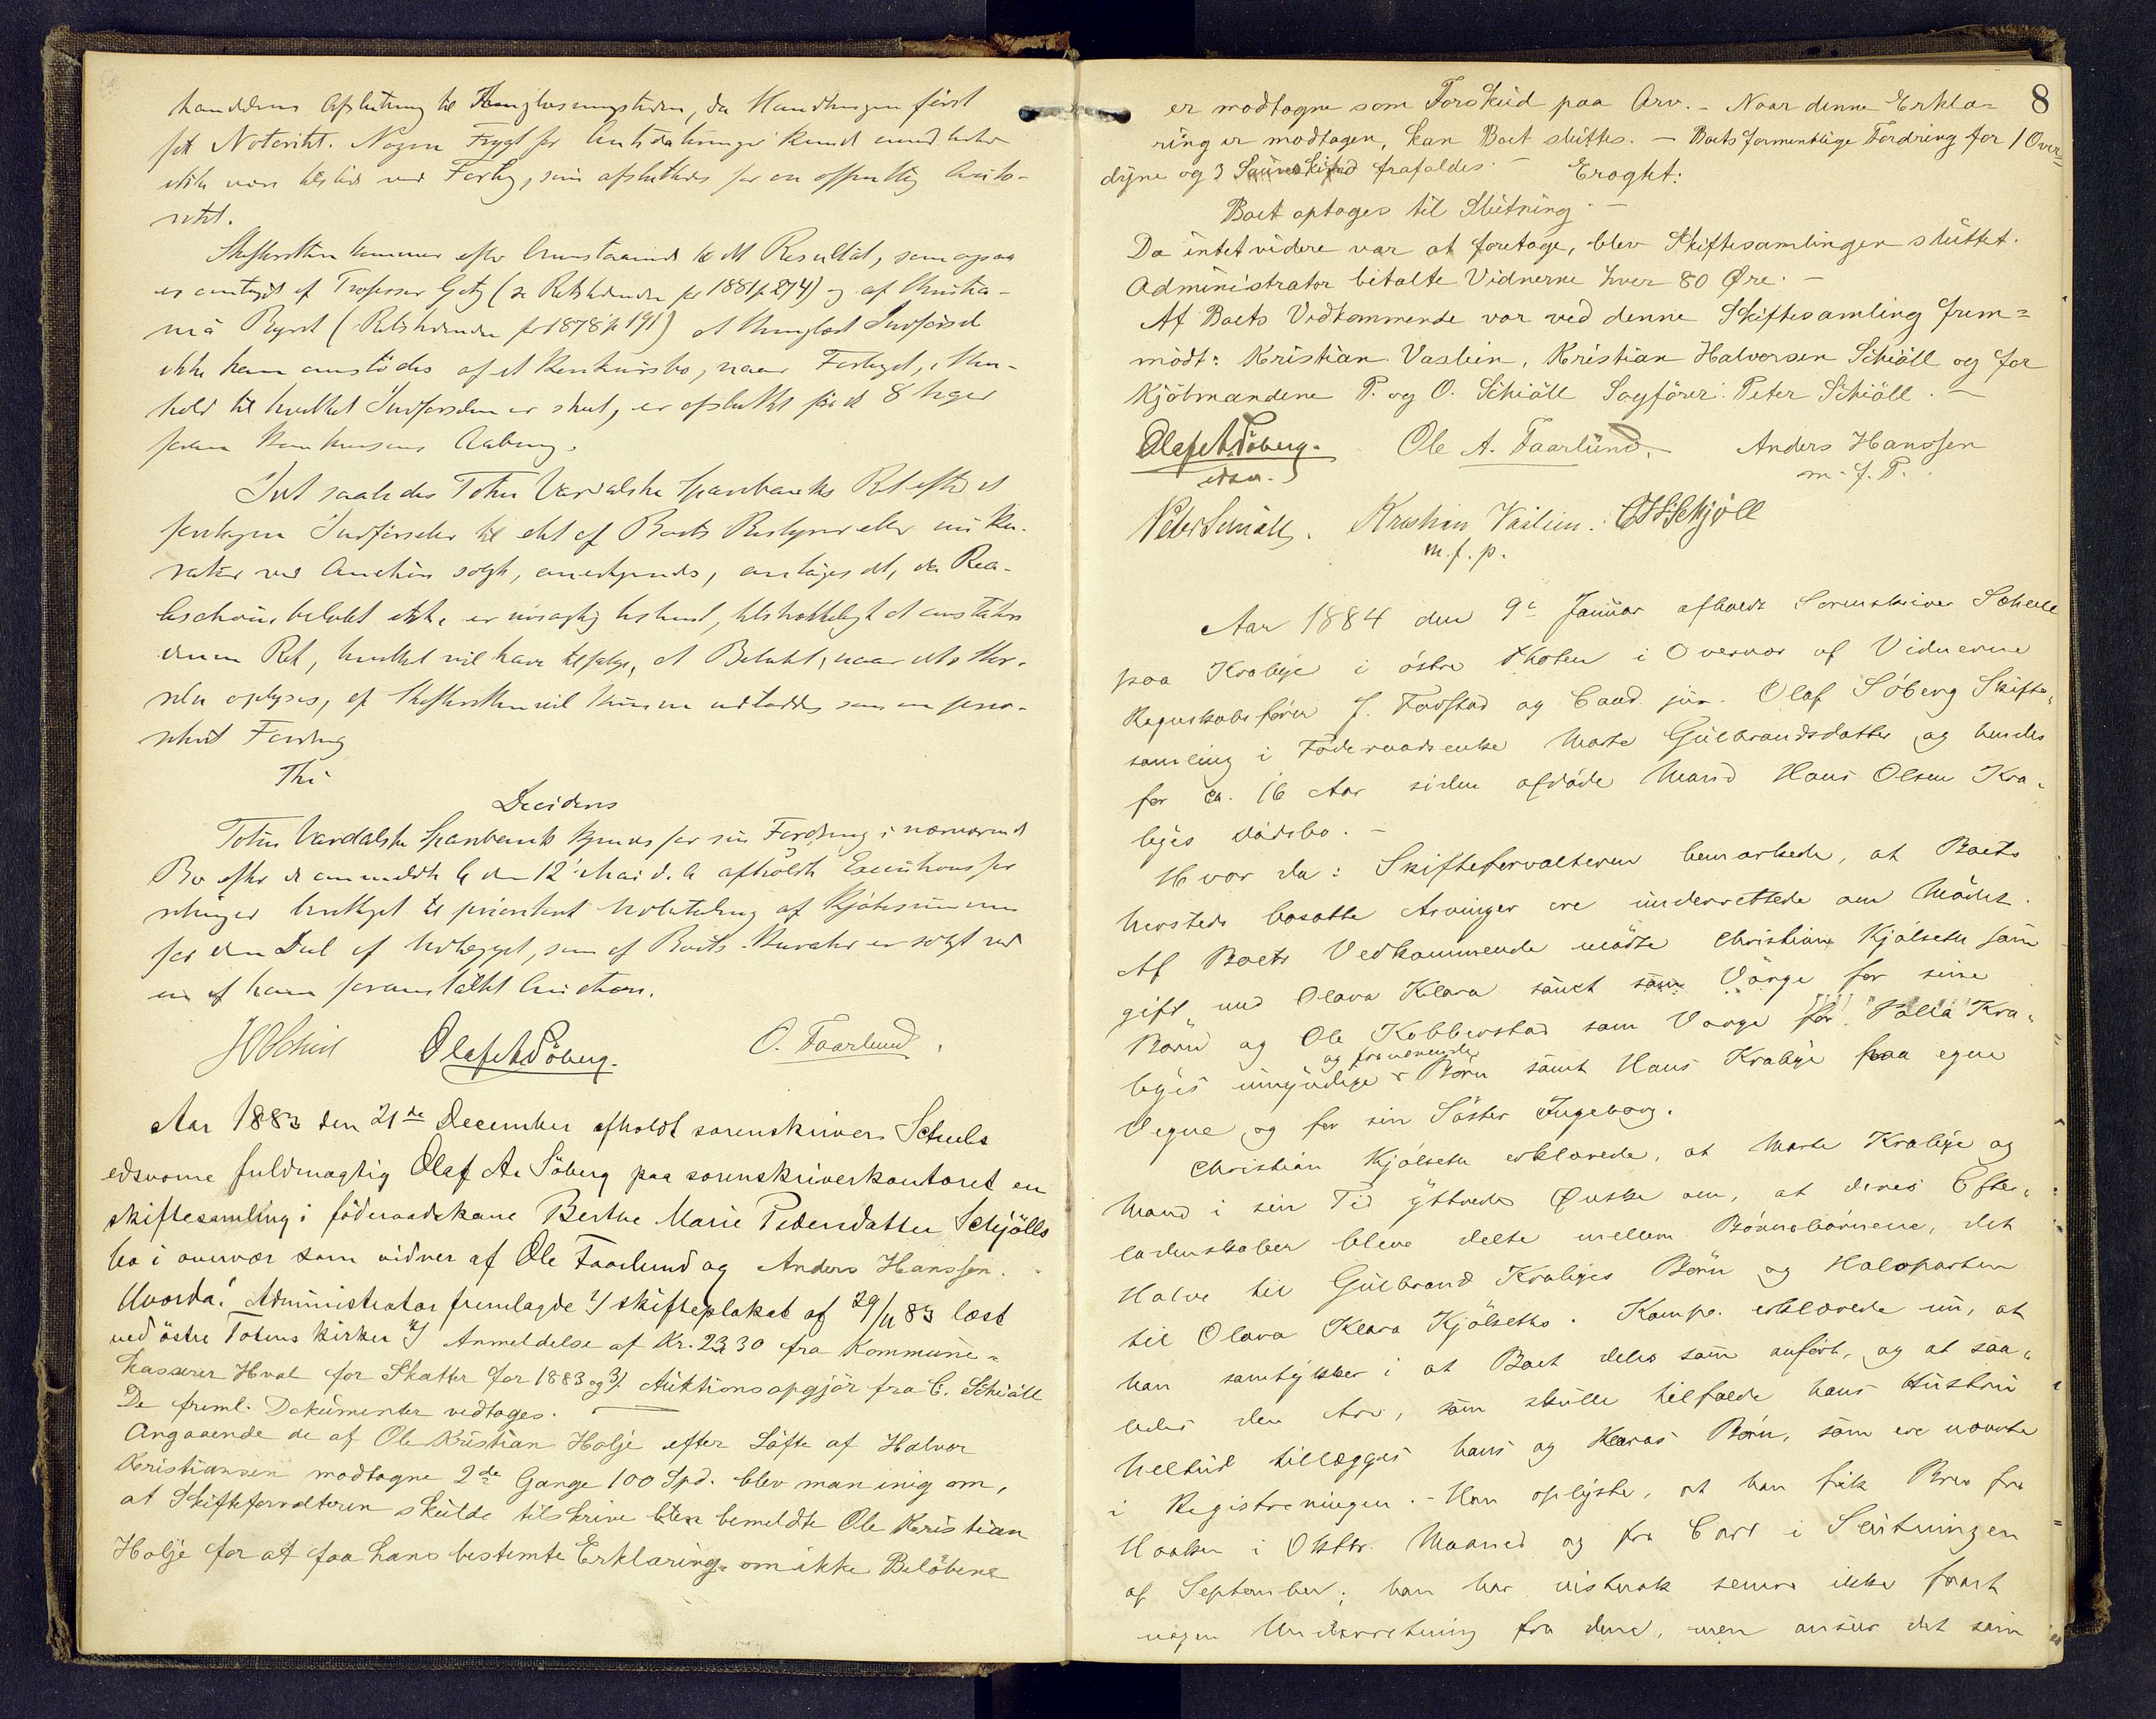 handdens Afslutning til Thinglæsningstiden, da Handlingen först
fik Notoritet. Nogen Frygt for Antidateringer kunde
ikke være tilstede ved Forlig, som afsluttedes for en offentlig Auto-
ritet.
Skifteretten kommer efter Ovenstaaende til det Resultat, som ogsaa
er antaget af Professor Getz (se Retstidende for 1881 p 274) og af Christia-
nia Byret (Retstidende for 1878 p 191) at thinglæst Indförsel
ikke kan omstödes af et Konkursbo, naar Forliget, i Hen-
hold til hvilket Indförselen er skeet, er afsluttet för de 8 Uger
foran Konkursens Aabning.
Idet saaledes Toten Vardalske Sparebanks Ret efter de
foretagne Indförseler til det af Boets Bestyrer eller Ku-
rator ved Auction solgte, anerkjendes, antages det, da Rea-
lisationsbelöbet ikke er nöiagtig bestemt, tilstrækkeligt at constatere
denne Ret, hvilket vil have tilfølge, at Belöbet, naar dets Stör-
relse oplyses, af Skifteretten vil kunne udloddes som en prio-
riteret Fordring
Thi
Decideres
Toten Vardalske Sparebank kjendes for sin Fordring i nærværende
Bo efter de anmeldte den 12 Mai d. A. afholdte Executionsfor-
retninger berettiget til prioriteret Udbetaling af Kjöbesummen
for den Deel af Udlægget, som af Boets Curator er solgt ved
en af ham foranstaltet Auction.
Olaf A Söberg. O. Faarlund.
Aar 1883 den 21de December afholdt sorenskriver Scheels
edsvorne fuldmægtig Olaf A. Söberg paa sorenskriverkontoret en
skiftesamling i föderaadskone Berthe Marie Pedersdatter Schjölls
bo i overvær som vidner af Ole Faarlund og Anders Hanssen.
Hvorda: Administrator fremlagde 1/ skifteplakat af 29/11 83 læst
ved östre Totens kirker 2/ Anmeldelse af Kr. 23 30 fra Kommune-
kasserer Hval for Skatter for 1883 og 3/ Auktionsopgjör fra C. Schiöll
De freml. Dokumenter vedtages.
Angaaende de af Ole Kristian Holje efter Löfte af Halvor
Kristiansen modtagne 2de Gange 100 Spd. blev man enig om,
at Skifteforvalteren skulde tilskrive bemeldte Ole Kristian
Holje for at faa hans bestemte Erklæring om ikke Belöbene
8
er modtagne som Forskud paa Arv. - Naar denne Erklæ-
ring er modtagen, kan Boet sluttes. - Boets formentlige Fordring for 1 Over-
dyne og 3 frafaldes. - Eragtet:
Boet optages til Slutning. -
Da intet videre var at foretage, blev Skiftesamlingen sluttet.
Administrator betalte Vidnerne hver 80 Øre. -
Af Boets Vedkommende var ved denne Skiftesamling frem-
mödt: Kristian Vaslien, Kristian Halvorsen Schiöll og for
Kjöbmændene P. og O. Schiöll Sagförer: Peter Schiöll. -
Olaf A Söberg. Ole A. Faarlund. Anders Hanssen
edsv. m. f. P.
Peter Schiöll. Kristian Vaslien. C H Schjöll
m. f. p.
Aar 1884 den 9de Januar afholdt Sorenskriver Scheel
paa Krabye i östre Thoten i Overvær af Vidnerne
Regnskabsförer J. Faystad og Cand. jur. Olaf Söberg Skifte-
samling i Föderaadsenke Marte Gulbrandsdatter og hendes
for ca. 16 Aar siden afdöde Mand Hans Olsen Kra-
byes dödsbo. -
Hvor da: Skifteforvalteren bemærkede, at Boets
hersteds bosatte Arvinger ere underrettede om Mödet.
Af Boets Vedkommende mödte Christian Kjölseth som
gift med Olava Klara samt som Værge for sine
Börn og Ole Kobberstad som Værge for Pålla Kra-
byes umyndige og fraværende Börn samt Hans Krabye paa egne
Vegne og for sin Söster Ingeborg.
Christian Kjölseth erklærede, at Marte Krabye og
Mand i sin Tid yttrede Ønske om, at deres Efter-
ladenskaber bleve delte mellem Börnebörnene, det
Halve til Gulbrand Krabyes Börn og Halvparten
til Olava Klara Kjölseths. Komp. erklærede nu, at
han samtykker i at Boet deles som anfört, og at saa-
ledes den Arv, som skulle tilfalde hans Hustru
heelt ud tillægges hans og Klaras Börn, som ere nævnte
i Registreringen. - Han oplyste, at han fik Brev fra
Haaken i Oktbr. Maaned og fra Carl i Slutningen
af September; han har vistnok senere ikke faaet
nogen Underretning fra dem, men anseer det som